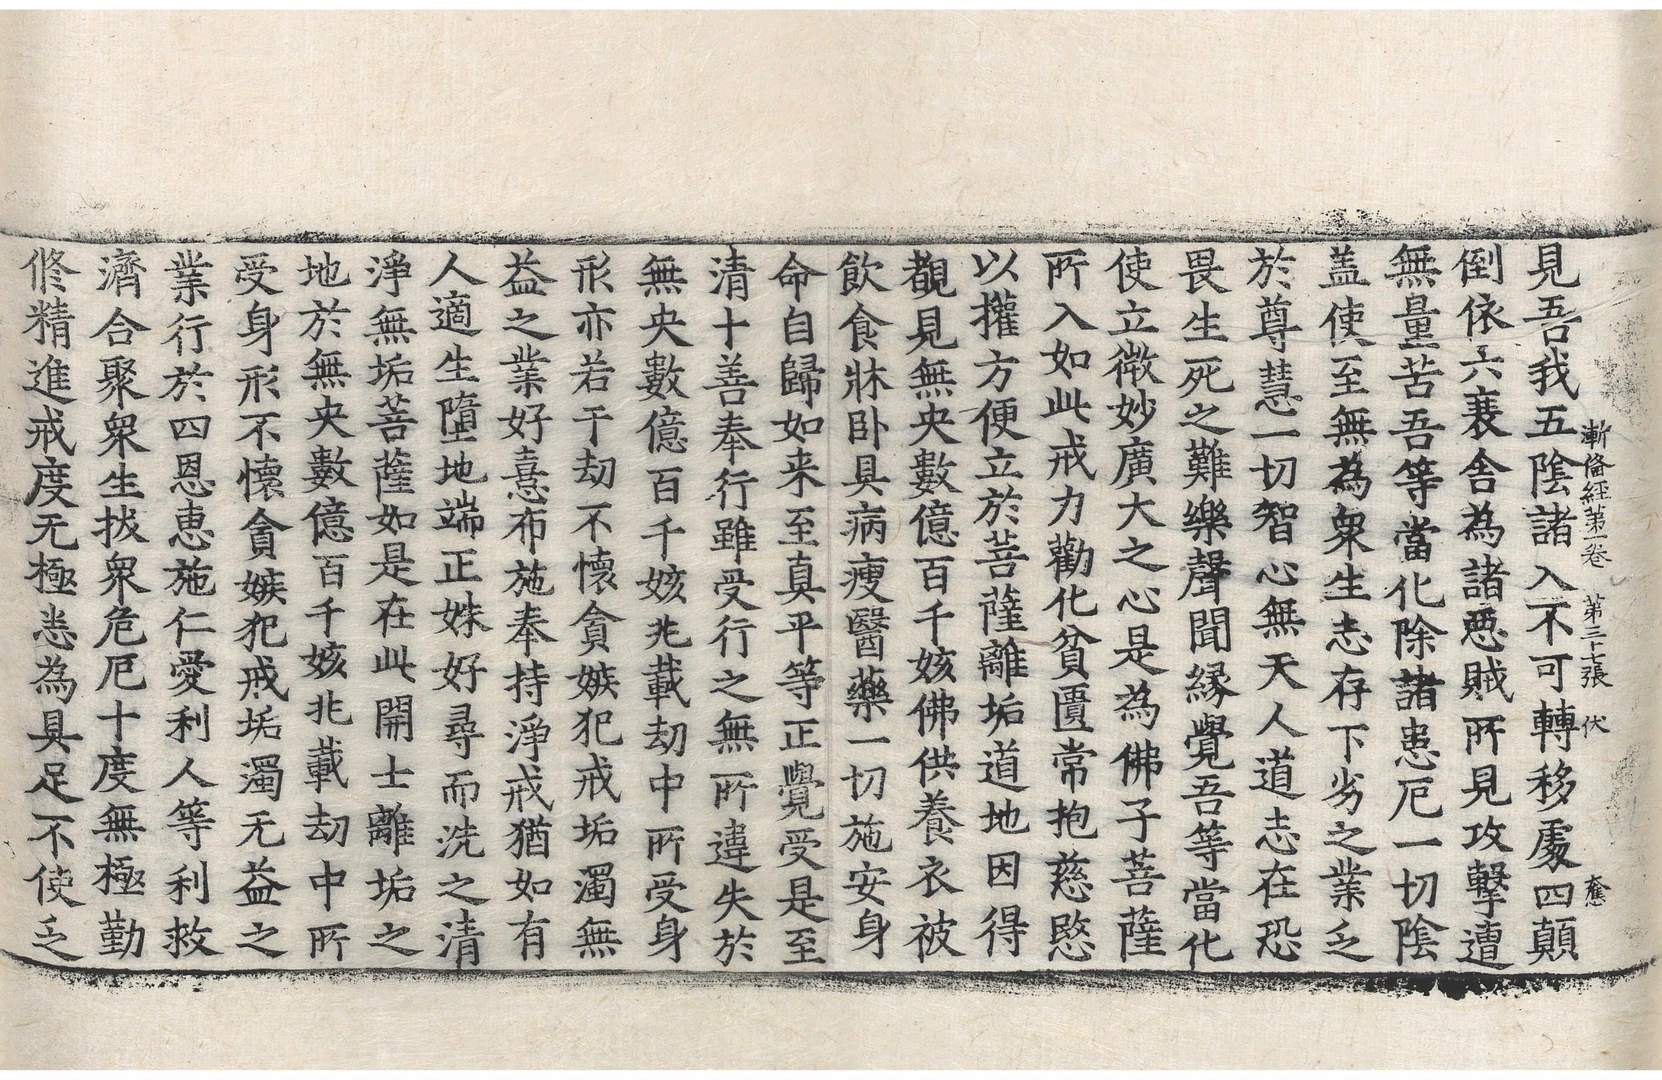 漸俻經第一卷　第三十七張　伏
見吾我五陰諸入不可轉移處四顛
倒依六衰舍為諸惡賊所見攻擊遭
無量苦吾等當化除諸患厄一切陰
盖使至無為衆生志存下劣之業乏
於尊慧一切智心無天人道志在恐
畏生死之難樂聲聞縁覺吾等當化
使立微妙廣大之心是為佛子菩薩
所入如此戒力勸化貧匱常抱慈愍
以權方便立於菩薩離垢道地因得
覩見無央數億百千姟佛供養衣被
飲食牀卧具病瘦醫藥一切施安身
命自歸如来至真平等正覺受是至
清十善奉行雖受行之無所違失於
無央數億百千姟兆載劫中所受身
形亦若干劫不懷貪嫉犯戒垢濁無
益之業好憙布施奉持淨戒猶如有
人適生墮地端正姝好尋而洗之清
淨無垢菩薩如是在此開士離垢之
地於無央數億百千姟兆載劫中所
受身形不懷貪嫉犯戒垢濁无益之
業行於四恩恵施仁愛利人等利救
濟合聚衆生拔衆危厄十度無極勤
修精進戒度无極悉為具足不使乏